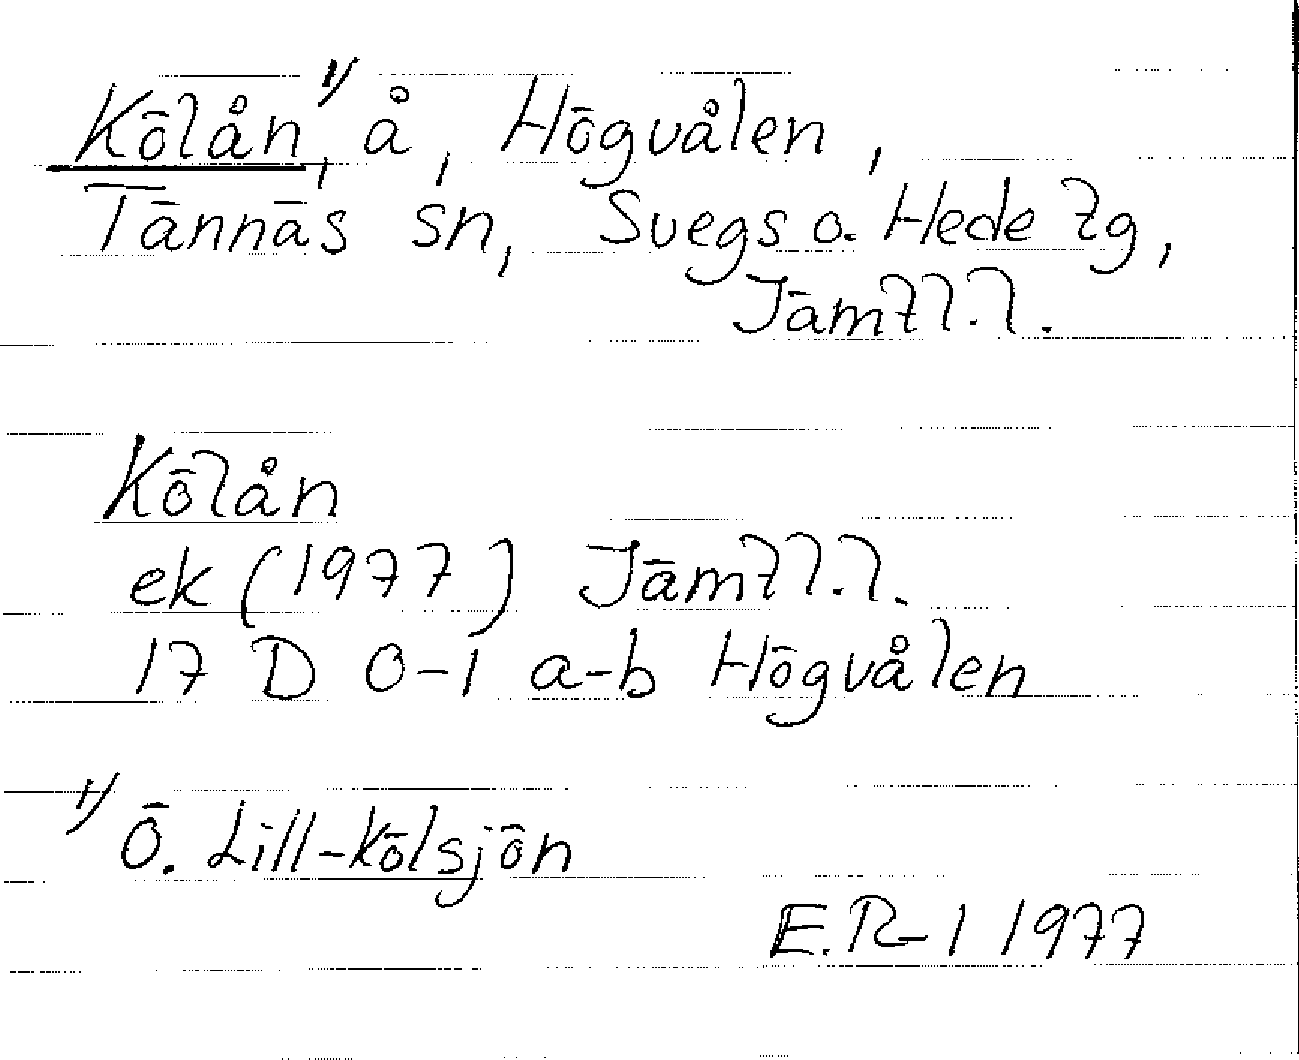 Kölån, 1) å, Högvålen,
Tännäs sn, Svegs o. Hede tg,
Jämtl.l.
Kölån
ek (1977) Jämtl.l.
17 D 0-1 a-b Högvålen
1) Ö. Lill-kölsjön
E.R-l 1977